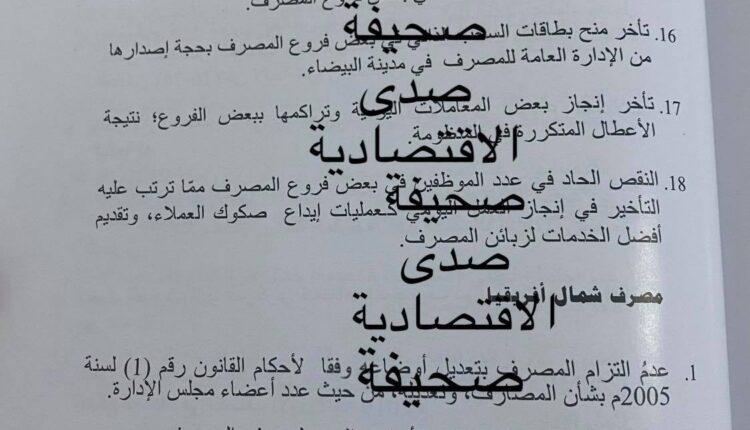 فروع المصرف.
16. تأخر منح بطاقات السحب في بعض فروع المصرف بحجة إصدارها
من الإدارة العامة للمصرف في مدينة البيضاء.
17. تأخر إنجاز بعض المعاملات اليومية وتراكمها ببعض الفروع؛ نتيجة
الأعطال المتكررة في المنظومة.
18. النقص الحاد في عدد الموظفين في بعض فروع المصرف ممّا ترتب عليه
التأخير في إنجاز العمل اليومي كعمليات إيداع صكوك العملاء، وتقديم
أفضل الخدمات لزبائن المصرف.
مصرف شمال أفريقيا
1. عدمُ التزام المصرف بتعديل أوضاعه وفقا لأحكام القانون رقم (1) لسنة
2005م بشأن المصارف، وتعديله، من حيث عدد أعضاء مجلس الإدارة.
صحيفة
صدى
الاقتصادية
صحيفة
صدى
الاقتصادية
صحيفة